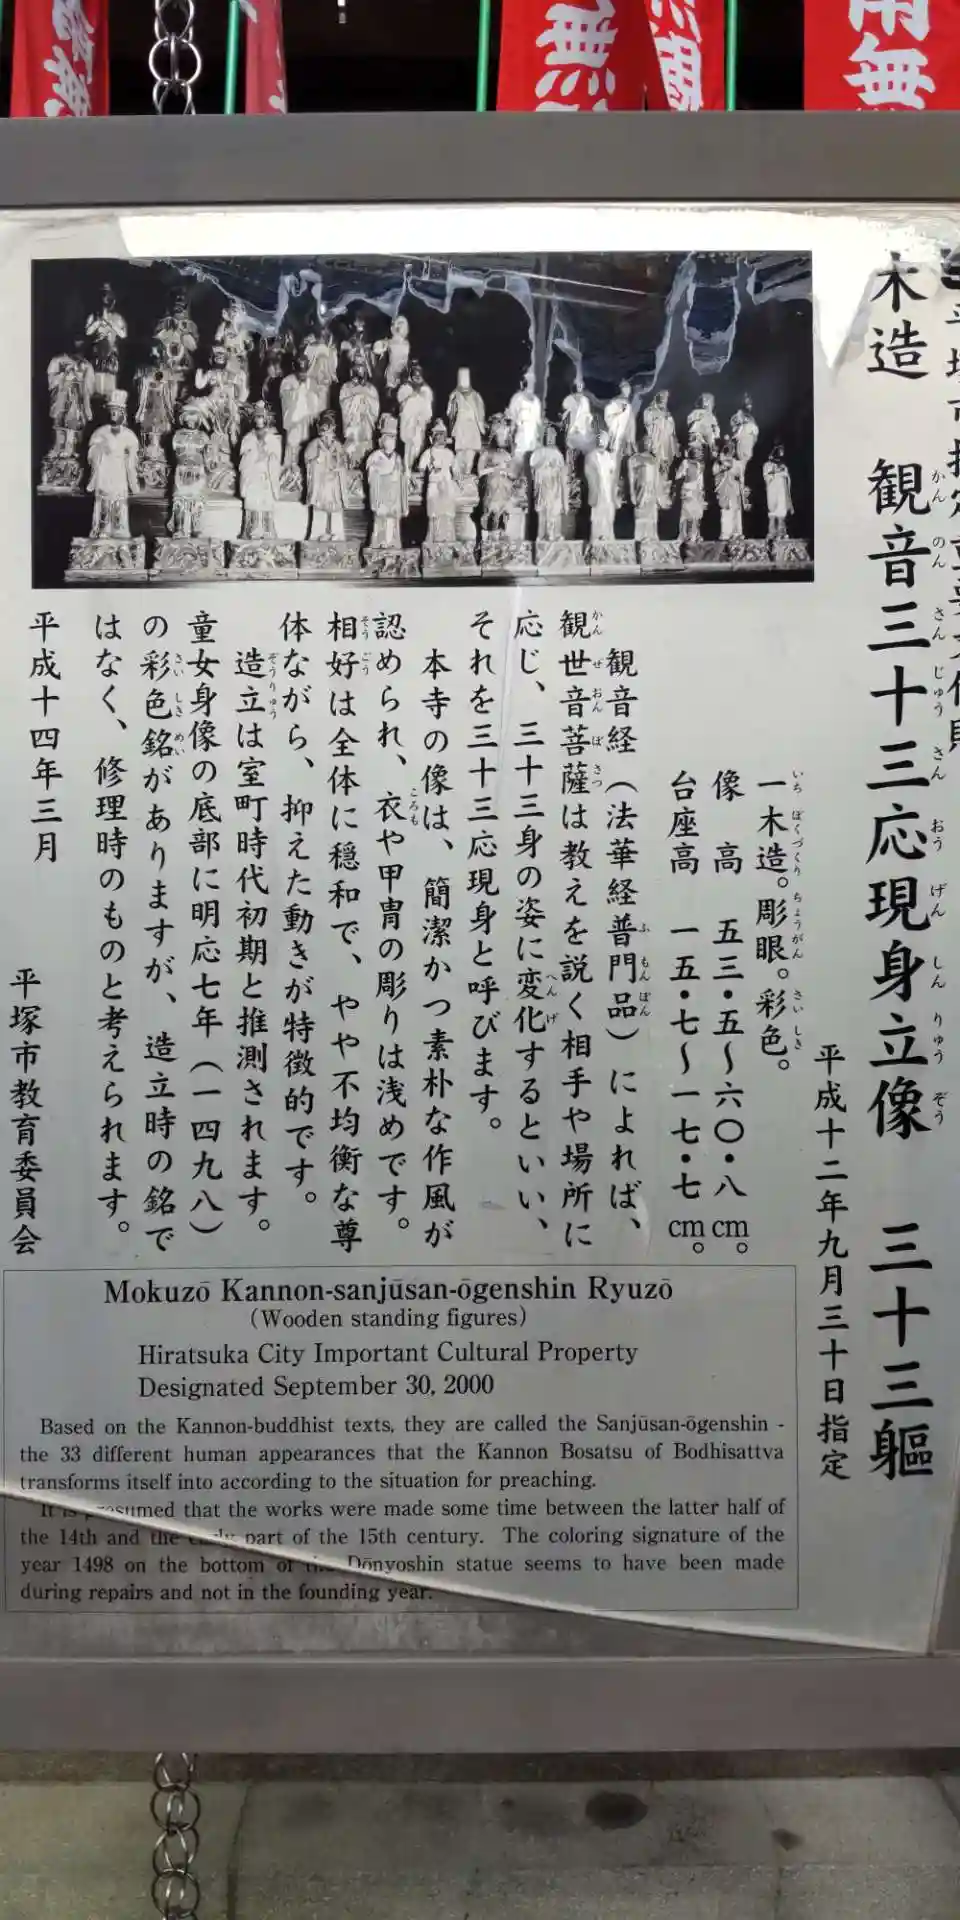 無
南無
平塚市指定重要文化財
木造 観音三十三応現身立像 三十三軀
かんのんさんじゅうさんおうげんしんりゅうぞう
平成十二年九月三十日指定
一木造。彫眼。彩色。
いちぼくづくり ちょうがん さいしき
像 高 五三・五〜六〇・八cm。
台座高 一五・七〜一七・七cm。
観音経（法華経普門品）によれば、
ふもんぼん
観世音菩薩は教えを説く相手や場所に
かんぜおんぼさつ
応じ、三十三身の姿に変化するといい、
へんげ
それを三十三応現身と呼びます。
本寺の像は、簡潔かつ素朴な作風が
認められ、衣や甲冑の彫りは浅めです。
ころも
相好は全体に穏和で、やや不均衡な尊
そうごう
体ながら、抑えた動きが特徴的です。
造立は室町時代初期と推測されます。
ぞうりゅう
童女身像の底部に明応七年（一四九八）
の彩色銘がありますが、造立時の銘で
さいしきめい
はなく、修理時のものと考えられます。
平成十四年三月
平塚市教育委員会
Mokuzō Kannon-sanjūsan-ōgenshin Ryuzō
(Wooden standing figures)
Hiratsuka City Important Cultural Property
Designated September 30, 2000
Based on the Kannon-buddhist texts, they are called the Sanjūsan-ōgenshin -
the 33 different human appearances that the Kannon Bosatsu of Bodhisattva
transforms itself into according to the situation for preaching.
It is presumed that the works were made some time between the latter half of
the 14th and the early part of the 15th century. The coloring signature of the
year 1498 on the bottom of the Dōnyoshin statue seems to have been made
during repairs and not in the founding year.